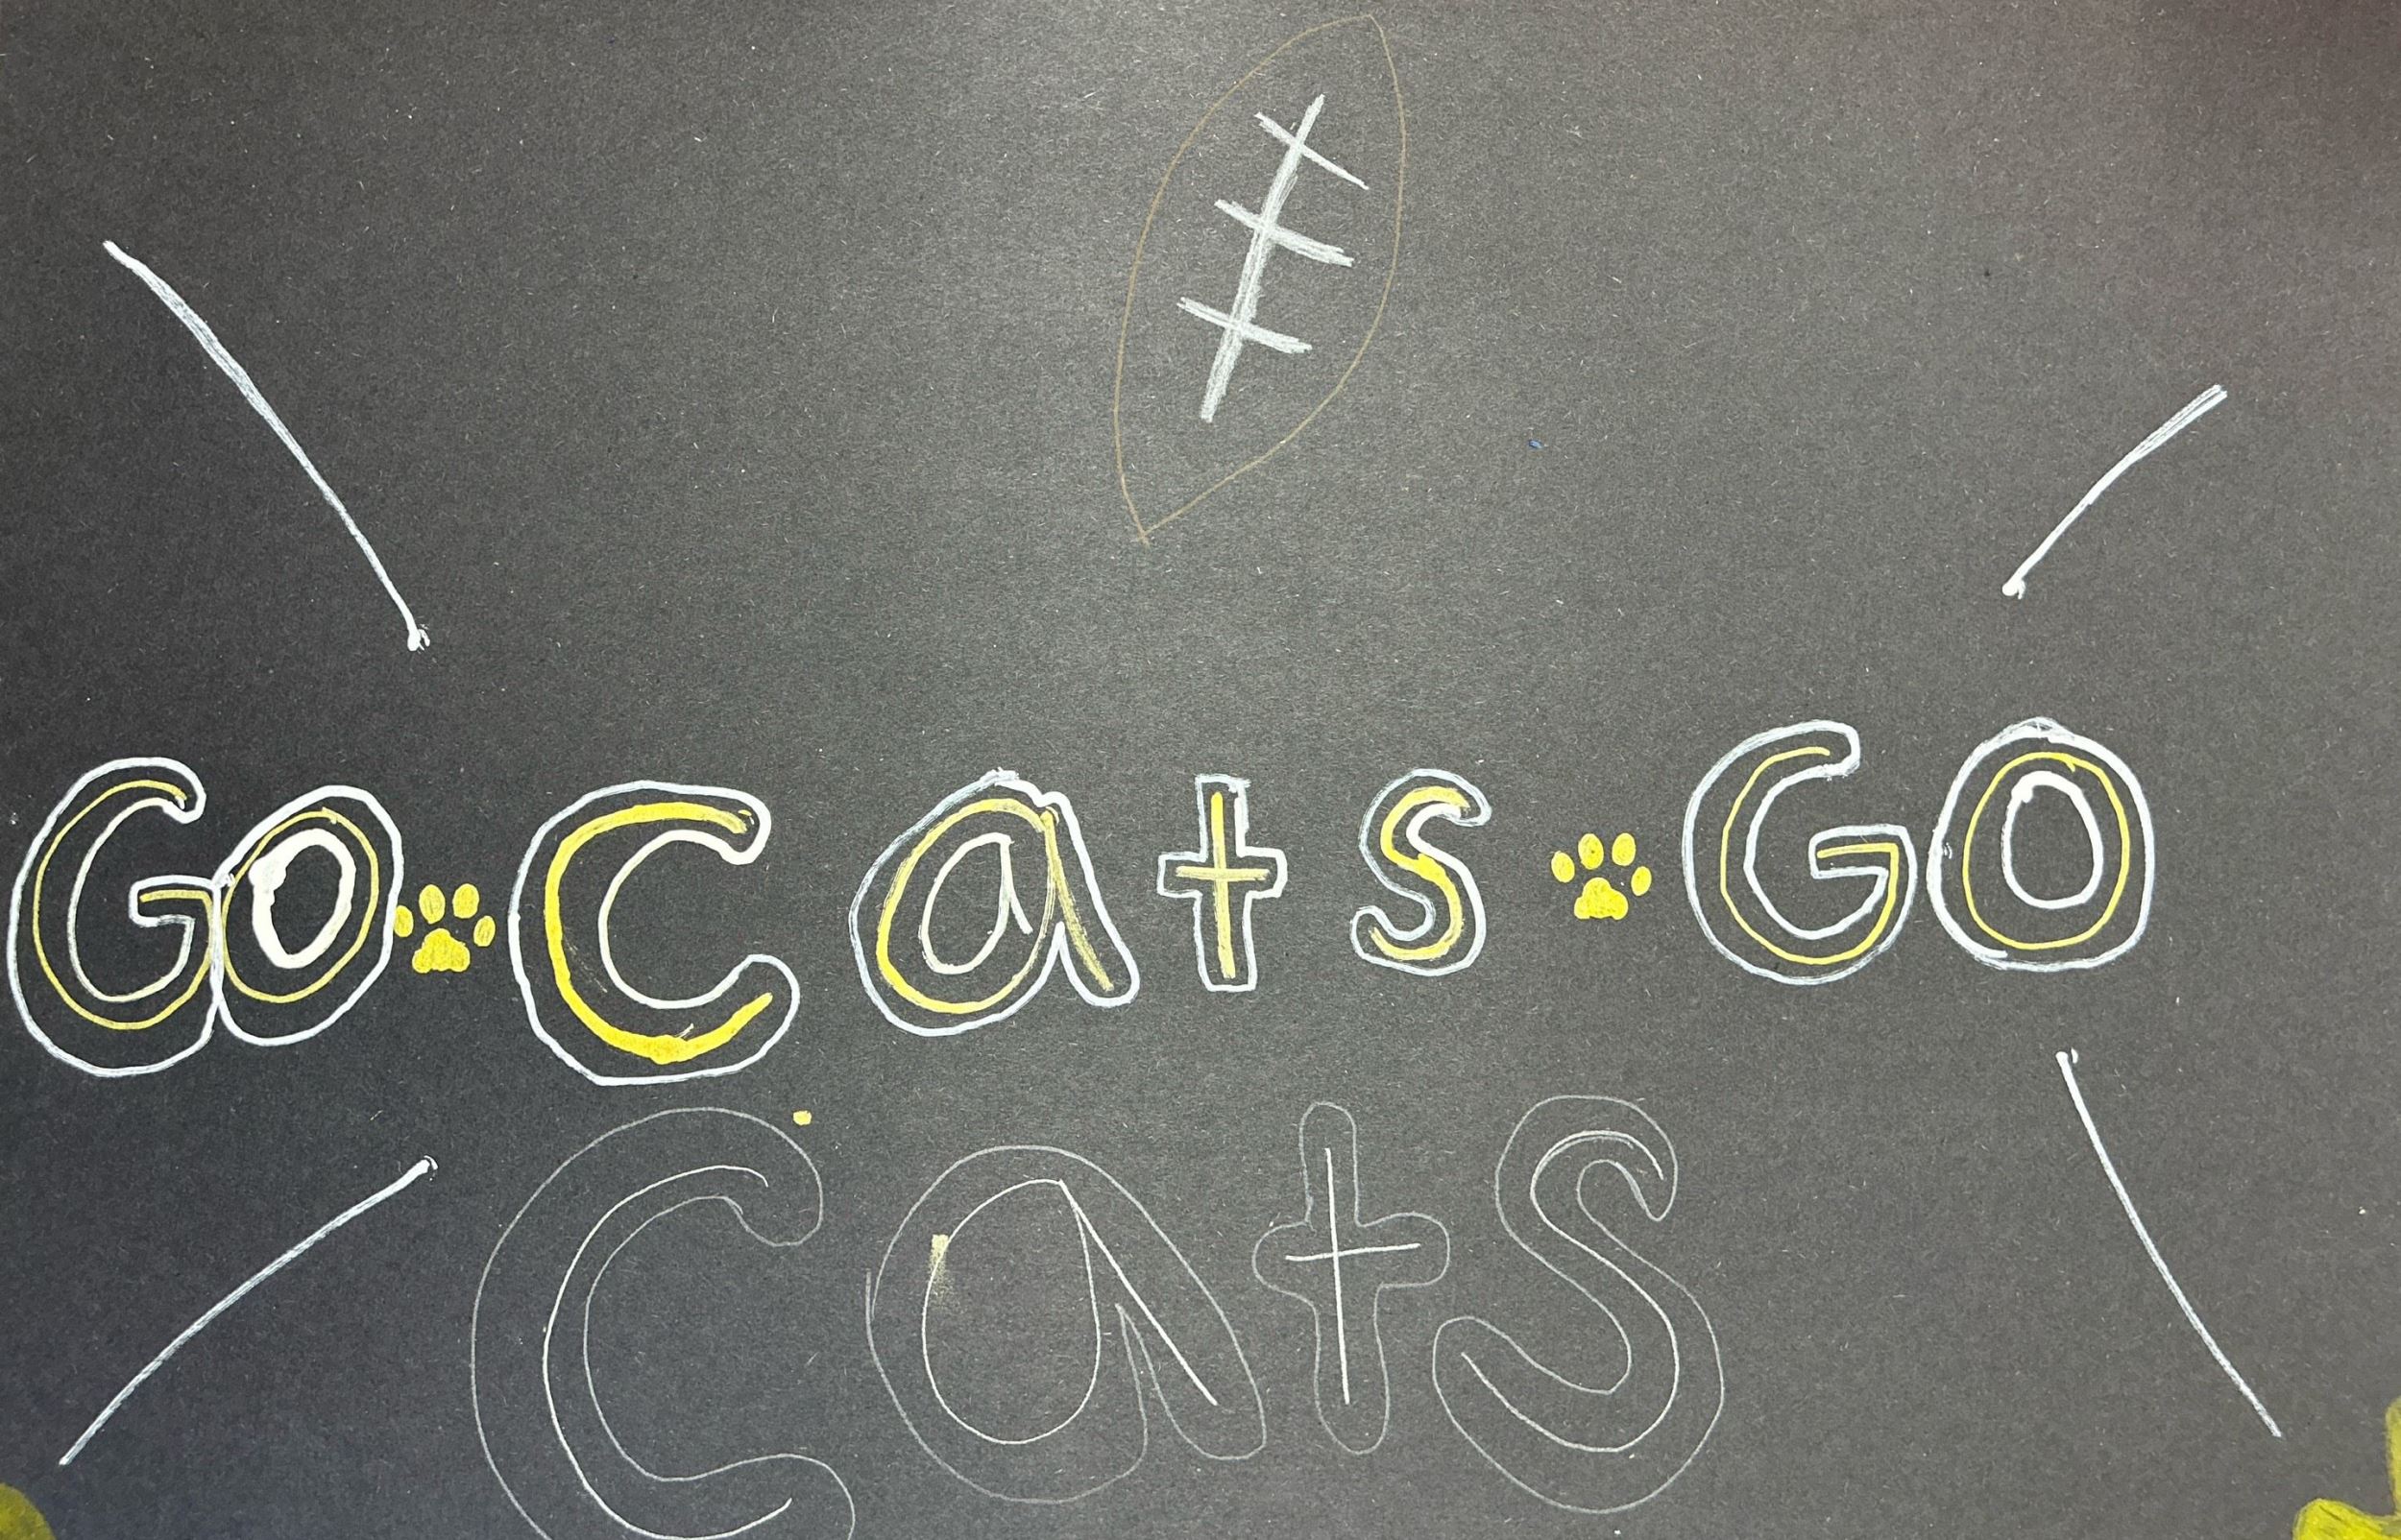 GO Cats GO
Cats